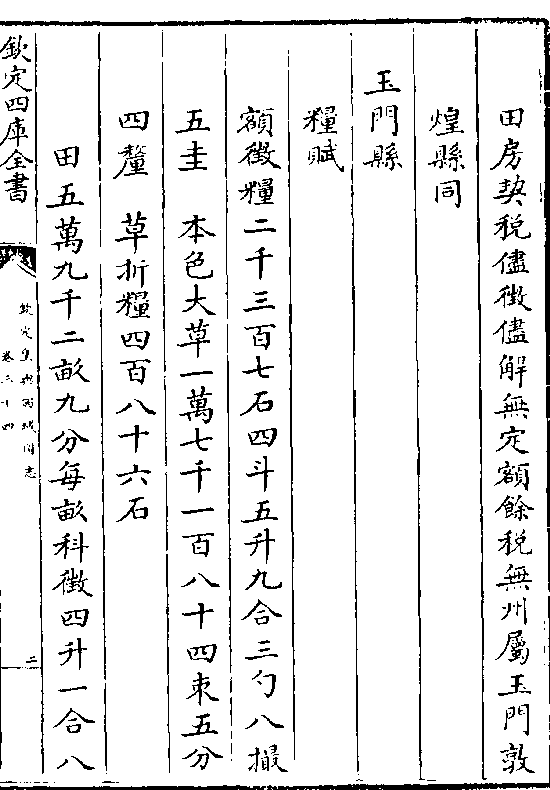 田房契税儘徴儘解無定額餘税無州屬玉門敦
煌縣同
玉門縣
糧賦
額徴糧二千三百七石四斗五升九合三勺八撮
五圭　本色大草一萬七千一百八十四束五分
四釐　草折糧四百八十六石
田五萬九千二畝九分每畝科徴四升一合八
欽定四庫全書
欽定皇輿西域圖志
卷三十四
二